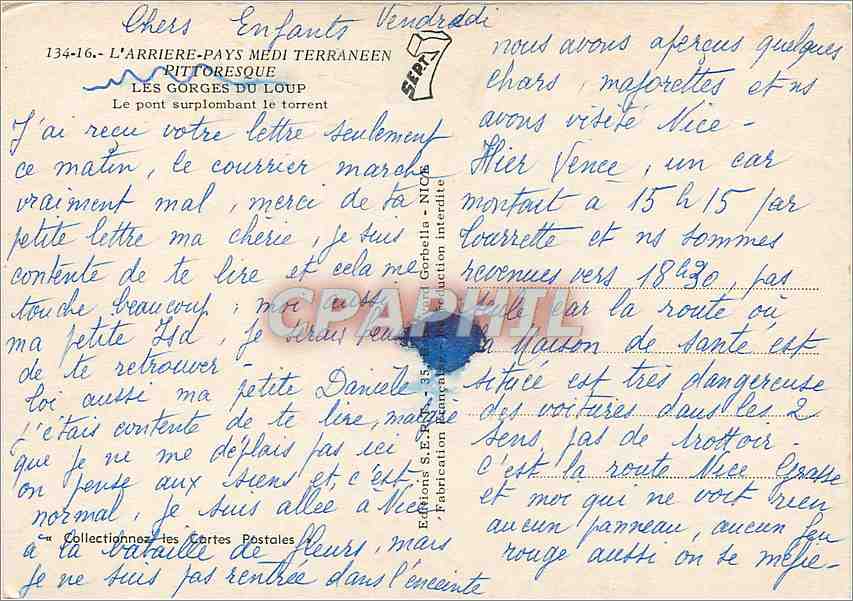 Chers Enfants Vendredi
134-16.- L'ARRIERE-PAYS MEDITERRANEEN
PITTORESQUE
LES GORGES DU LOUP
Le pont surplombant le torrent
SERT
J'ai reçu votre lettre seulement
ce matin, le courrier marche
vraiment mal, merci de ta
petite lettre ma chérie, je suis
contente de te lire et cela me
touche beaucoup, moi aussi
ma petite Isa, je serais
de te retrouver -
Toi aussi ma petite Danièle
j'étais contente de te lire, malgré
que je ne me déplais pas ici
on pense aux siens et c'est
normal, je suis allée à Nice
à la bataille de fleurs, mais
je ne suis pas rentrée dans l'enceinte
« Collectionnez les Cartes Postales »
Editions S.E.R.T. - 35, Gorbella - NICE
Fabrication Française reproduction interdite
CPAPHIL
nous avons aperçus quelques
chars, majorettes et ns
avons visité Nice -
Hier Vence, un car
montait à 15 h 15 par
Tourrette et ns sommes
revenues vers 18h30, pas
seule car la route où
la Maison de santé est
située est très dangereuse
des voitures dans les 2
sens pas de trottoir -
c'est la route Nice Grasse
et moi qui ne voit rien
aucun panneau, aucun feu
rouge aussi on se méfie -